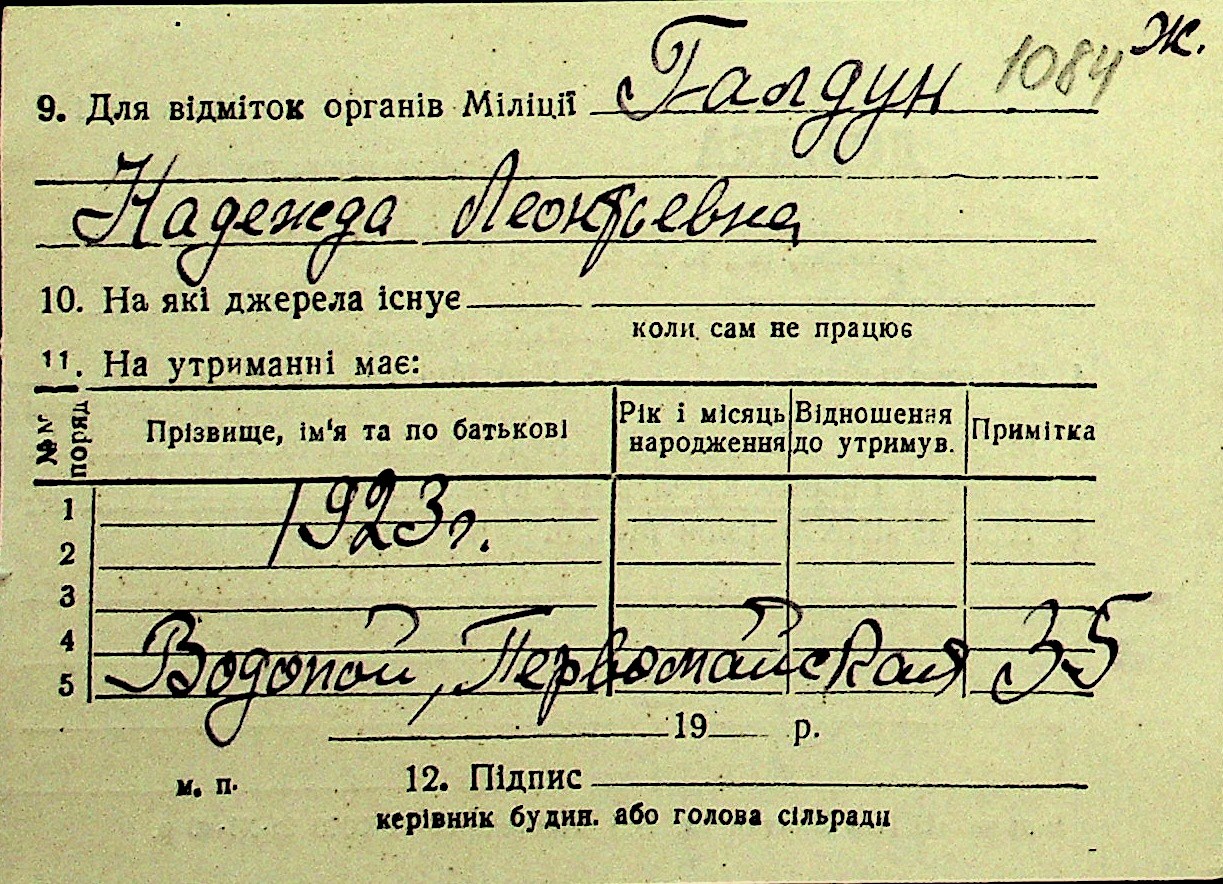 1084 ж.
9. Для відміток органів Міліції Галдун
Надежда Леонтьевна
10. На які джерела існує
коли сам не працює
11. На утриманні має:
№№ поряд Прізвище, ім'я та по батькові Рік і місяць народження Відношення до утримув. Примітка
1
1923 г.
2
3
4
5 Водопой, Первомайская 35
19 р.
м. п. 12. Підпис
керівник будин. або голова сільради